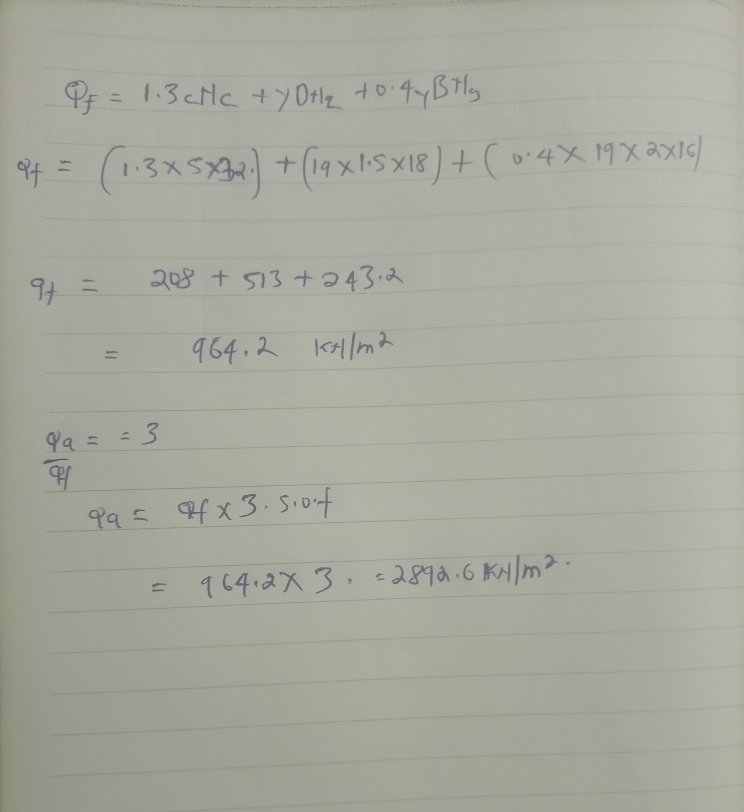 qf = 1.3cNc + γDNz + 0.4γBNg
qf = (1.3×5×32.) + (19×1.5×18) + (0.4×19×2×16)
qf = 208 + 513 + 243.2
= 964.2 KN/m²
qa/qf = = 3
qa = qf × 3. S.o.f
= 964.2 × 3. = 2892.6 KN/m².